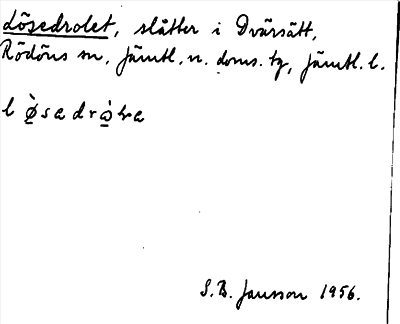 Lösedrolet, slåtter i Dvärsätt,
Rödöns sn, Jämtl. n. doms. tg, Jämtl. l.
S.B. Jansson 1956.